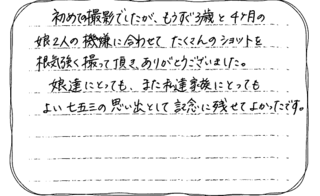 初めての撮影でしたが、もうすぐ3歳と4ケ月の
娘2人の機嫌に合わせてたくさんのショットを
根気強く撮って頂き、ありがとうございました。
娘達にとっても、また私達家族にとっても
よい七五三の思い出として記念に残せてよかったです。